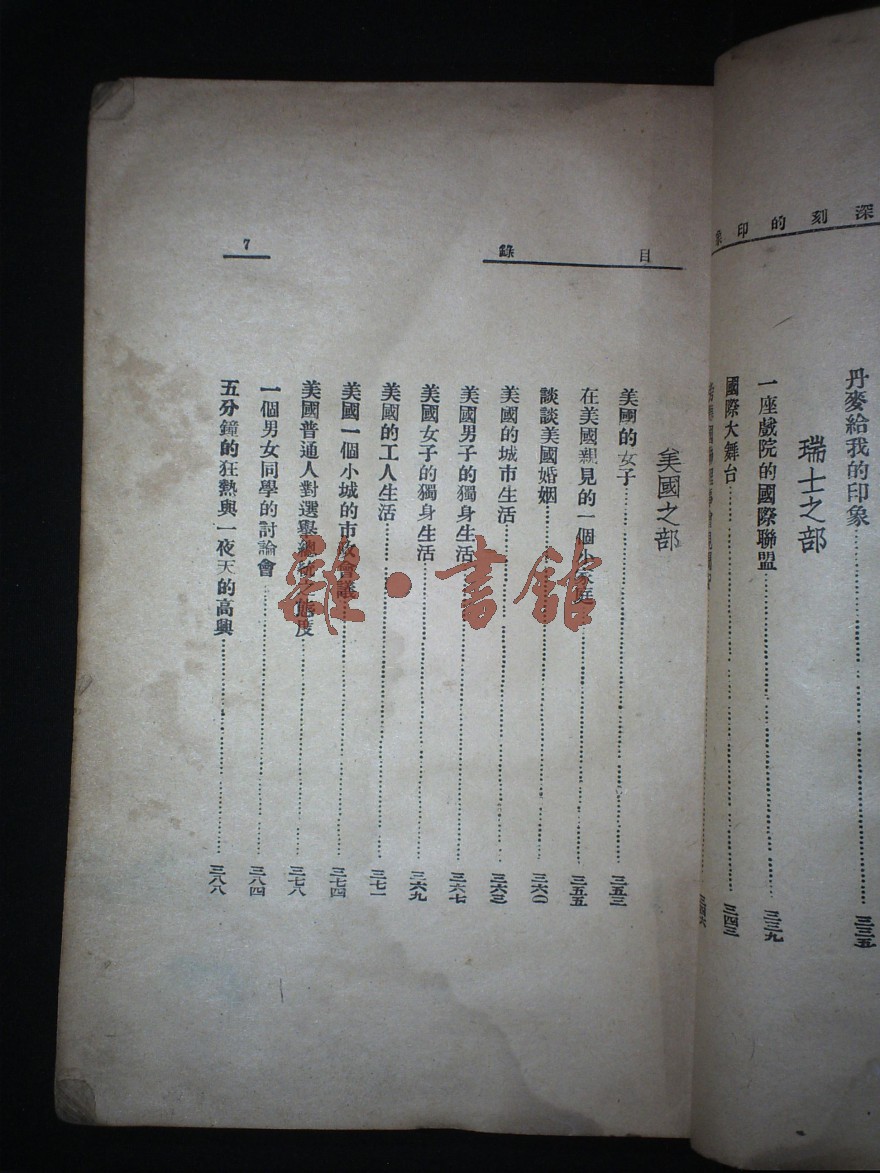 深刻的印象
丹麥給我的印象 三三五
瑞士之部
一座戲院的國際聯盟 三三九
國際大舞台 三四三
目錄
7
美國之部
美國的女子 三五三
在美國親見的一個小家庭 三五五
談談美國婚姻 三六〇
美國的城市生活 三六三
美國男子的獨身生活 三六七
美國女子的獨身生活 三六九
美國的工人生活 三七一
美國一個小城的市政會議 三七四
美國普通人對選舉總統之態度 三七八
一個男女同學的討論會 三八四
五分鐘的狂熱與一夜天的高興 三八八
雜·書館